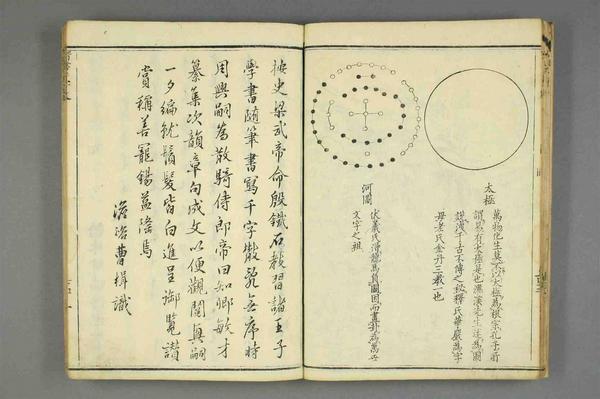 太極
萬物化生莫不以太極為根宗孔子所
謂易有太極是也濂溪先生述為圖
說洩千古不傳之秘釋氏華嚴為字
母老氏金丹三教一也
河圖
伏羲氏得龍馬負圖因而畫卦為萬世
文字之祖
按史梁武帝命殷鐵石教習諸王子
學書隨筆書寫千字散亂無序時
周興嗣為散騎侍郎帝曰知卿敏才
纂集次韻章句成文以便觀閱興嗣
一夕編就鬚髮皆白進呈御覽讚
賞稱善寵錫益隆焉
曹緝識